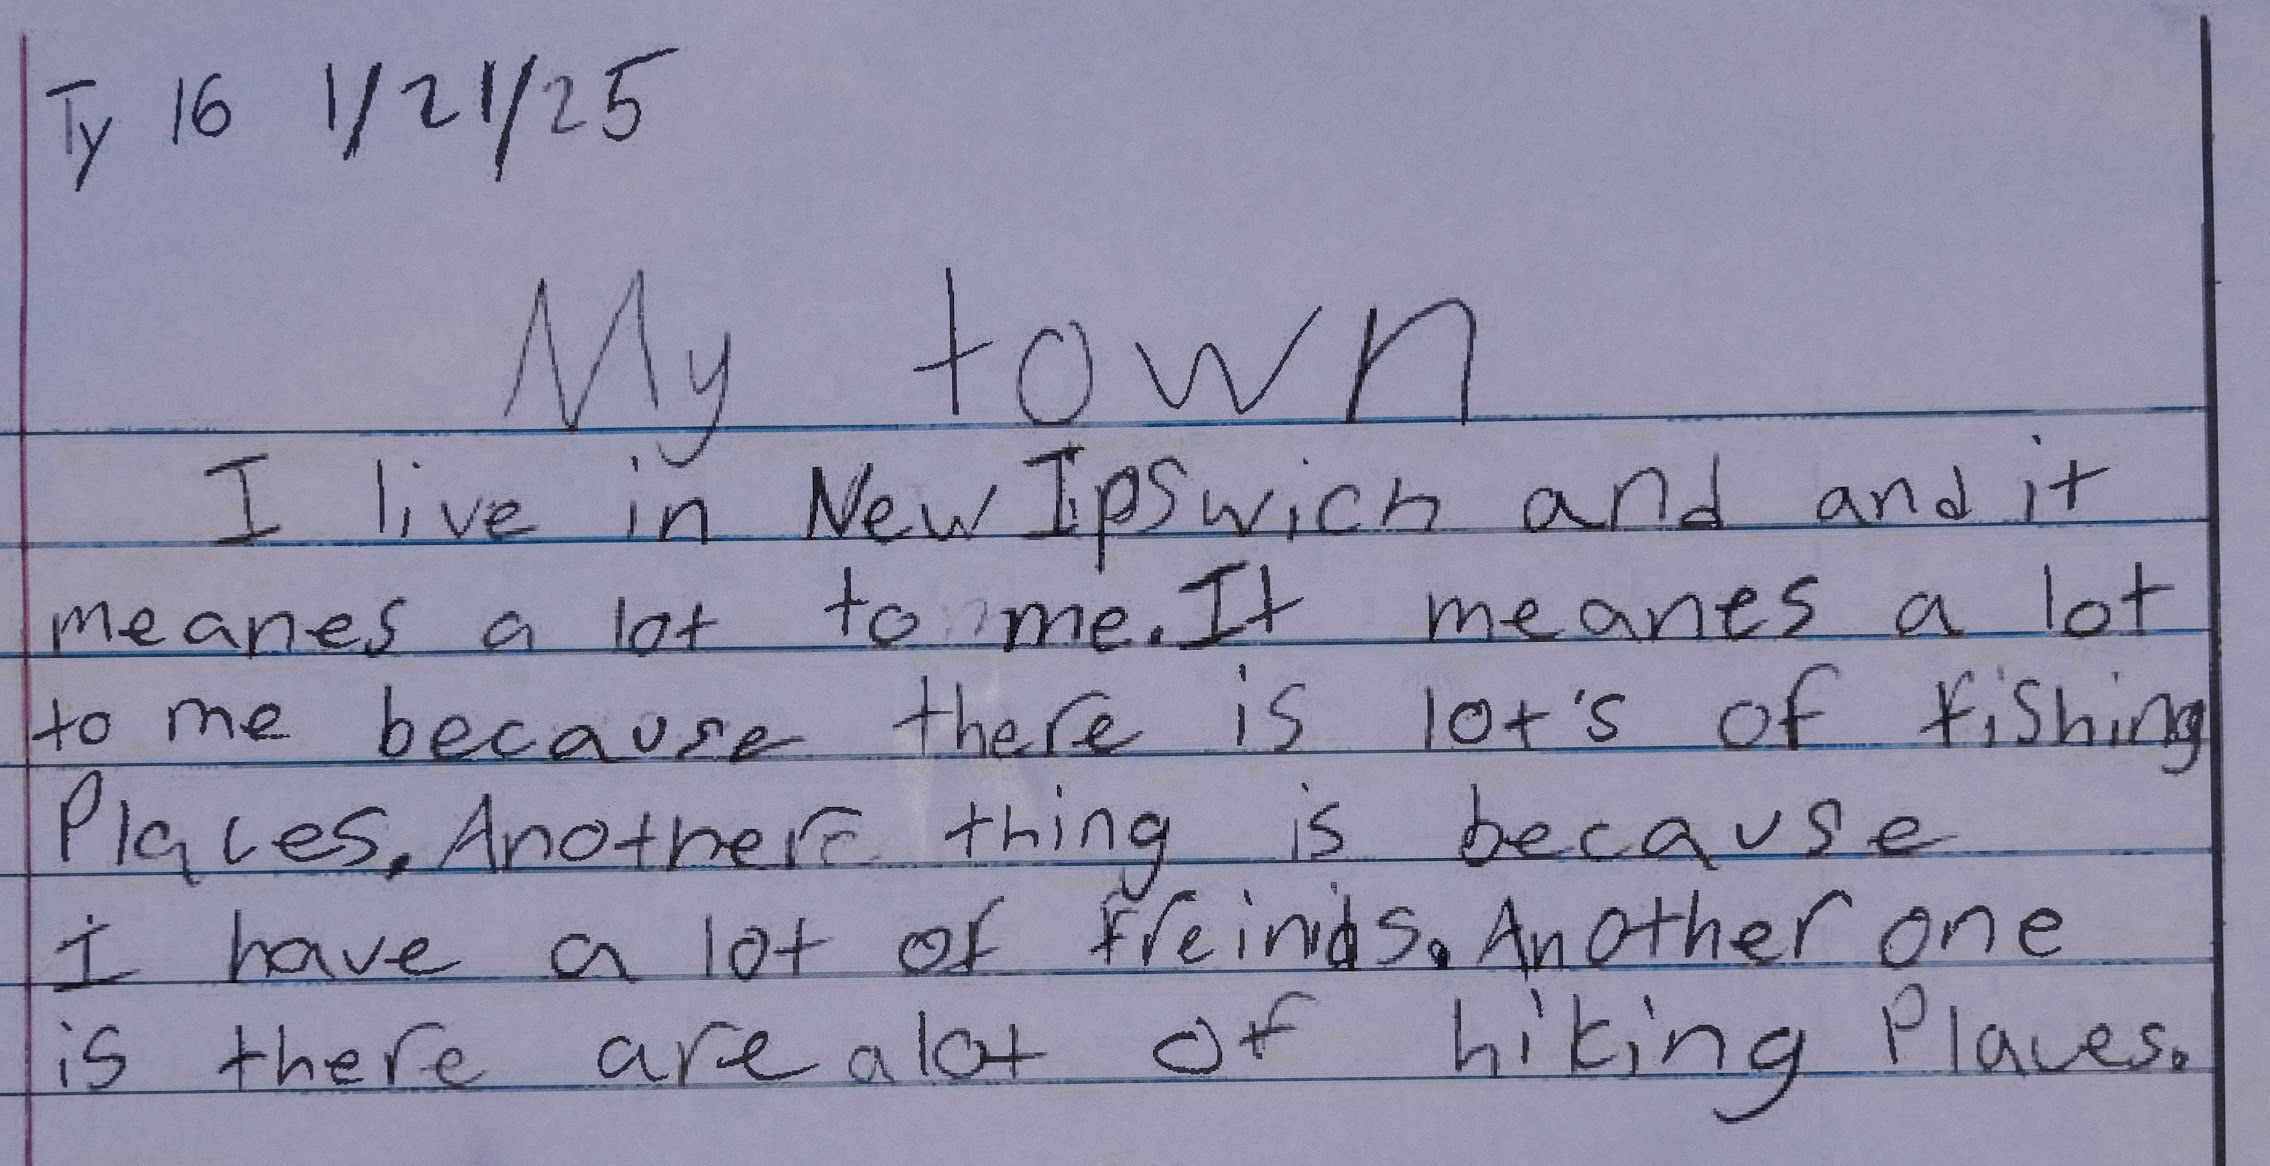 Ty 16 1/21/25
My town
I live in New Ipswich and and it
meanes a lot to me. It meanes a lot
to me because there is lot's of fishing
Places. Anothere thing is because
I have a lot of freinds. Another one
is there are a lot of hiking Places.